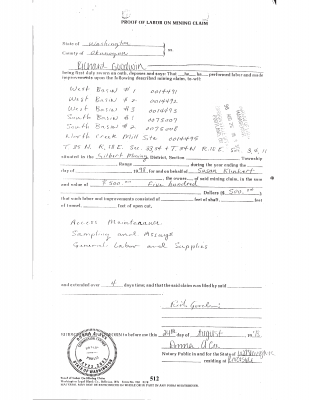 PROOF OF LABOR ON MINING CLAIM
State of Washington
County of Okanogan } ss
Richard Goodwin
being first duly sworn on oath, deposes and says: That he performed labor and made
improvements upon the following described mining claim, to-wit:
West Basin # 1 0014491
West Basin # 2 0014492
West Basin # 3 0014493
South Basin # 1 0075007
South Basin # 2 0075008
North Creek Mill Site 0014495
T 35 N. R. 18 E. Sec. 33,34 + T 34 N. R. 18 E. Sec. 3, 4, 11
situated in the Gilbert Mining District, Section Township
Range during the year ending the
day of and for and on behalf of Susan
the owner of said mining claim, in the sum
and value of $ 500.00 Five hundred
Dollars ($ 500.00 )
that such labor and improvements consisted of feet of shaft, feet
of tunnel, feet of open cut,
Access Maintenance
Sampling and Assays
General Labor and Supplies
and extended over 4 days time; and that the said claim was filed by said
SUBSCRIBED AND SWORN to before me this 24th day of August
Notary Public in and for the State of Washington
residing at
NOTARY
PUBLIC
STATE OF WASHINGTON
512
Proof of Labor on Mining Claim